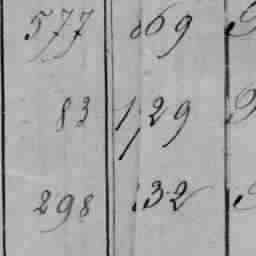 577 869
83 1,29
298 132